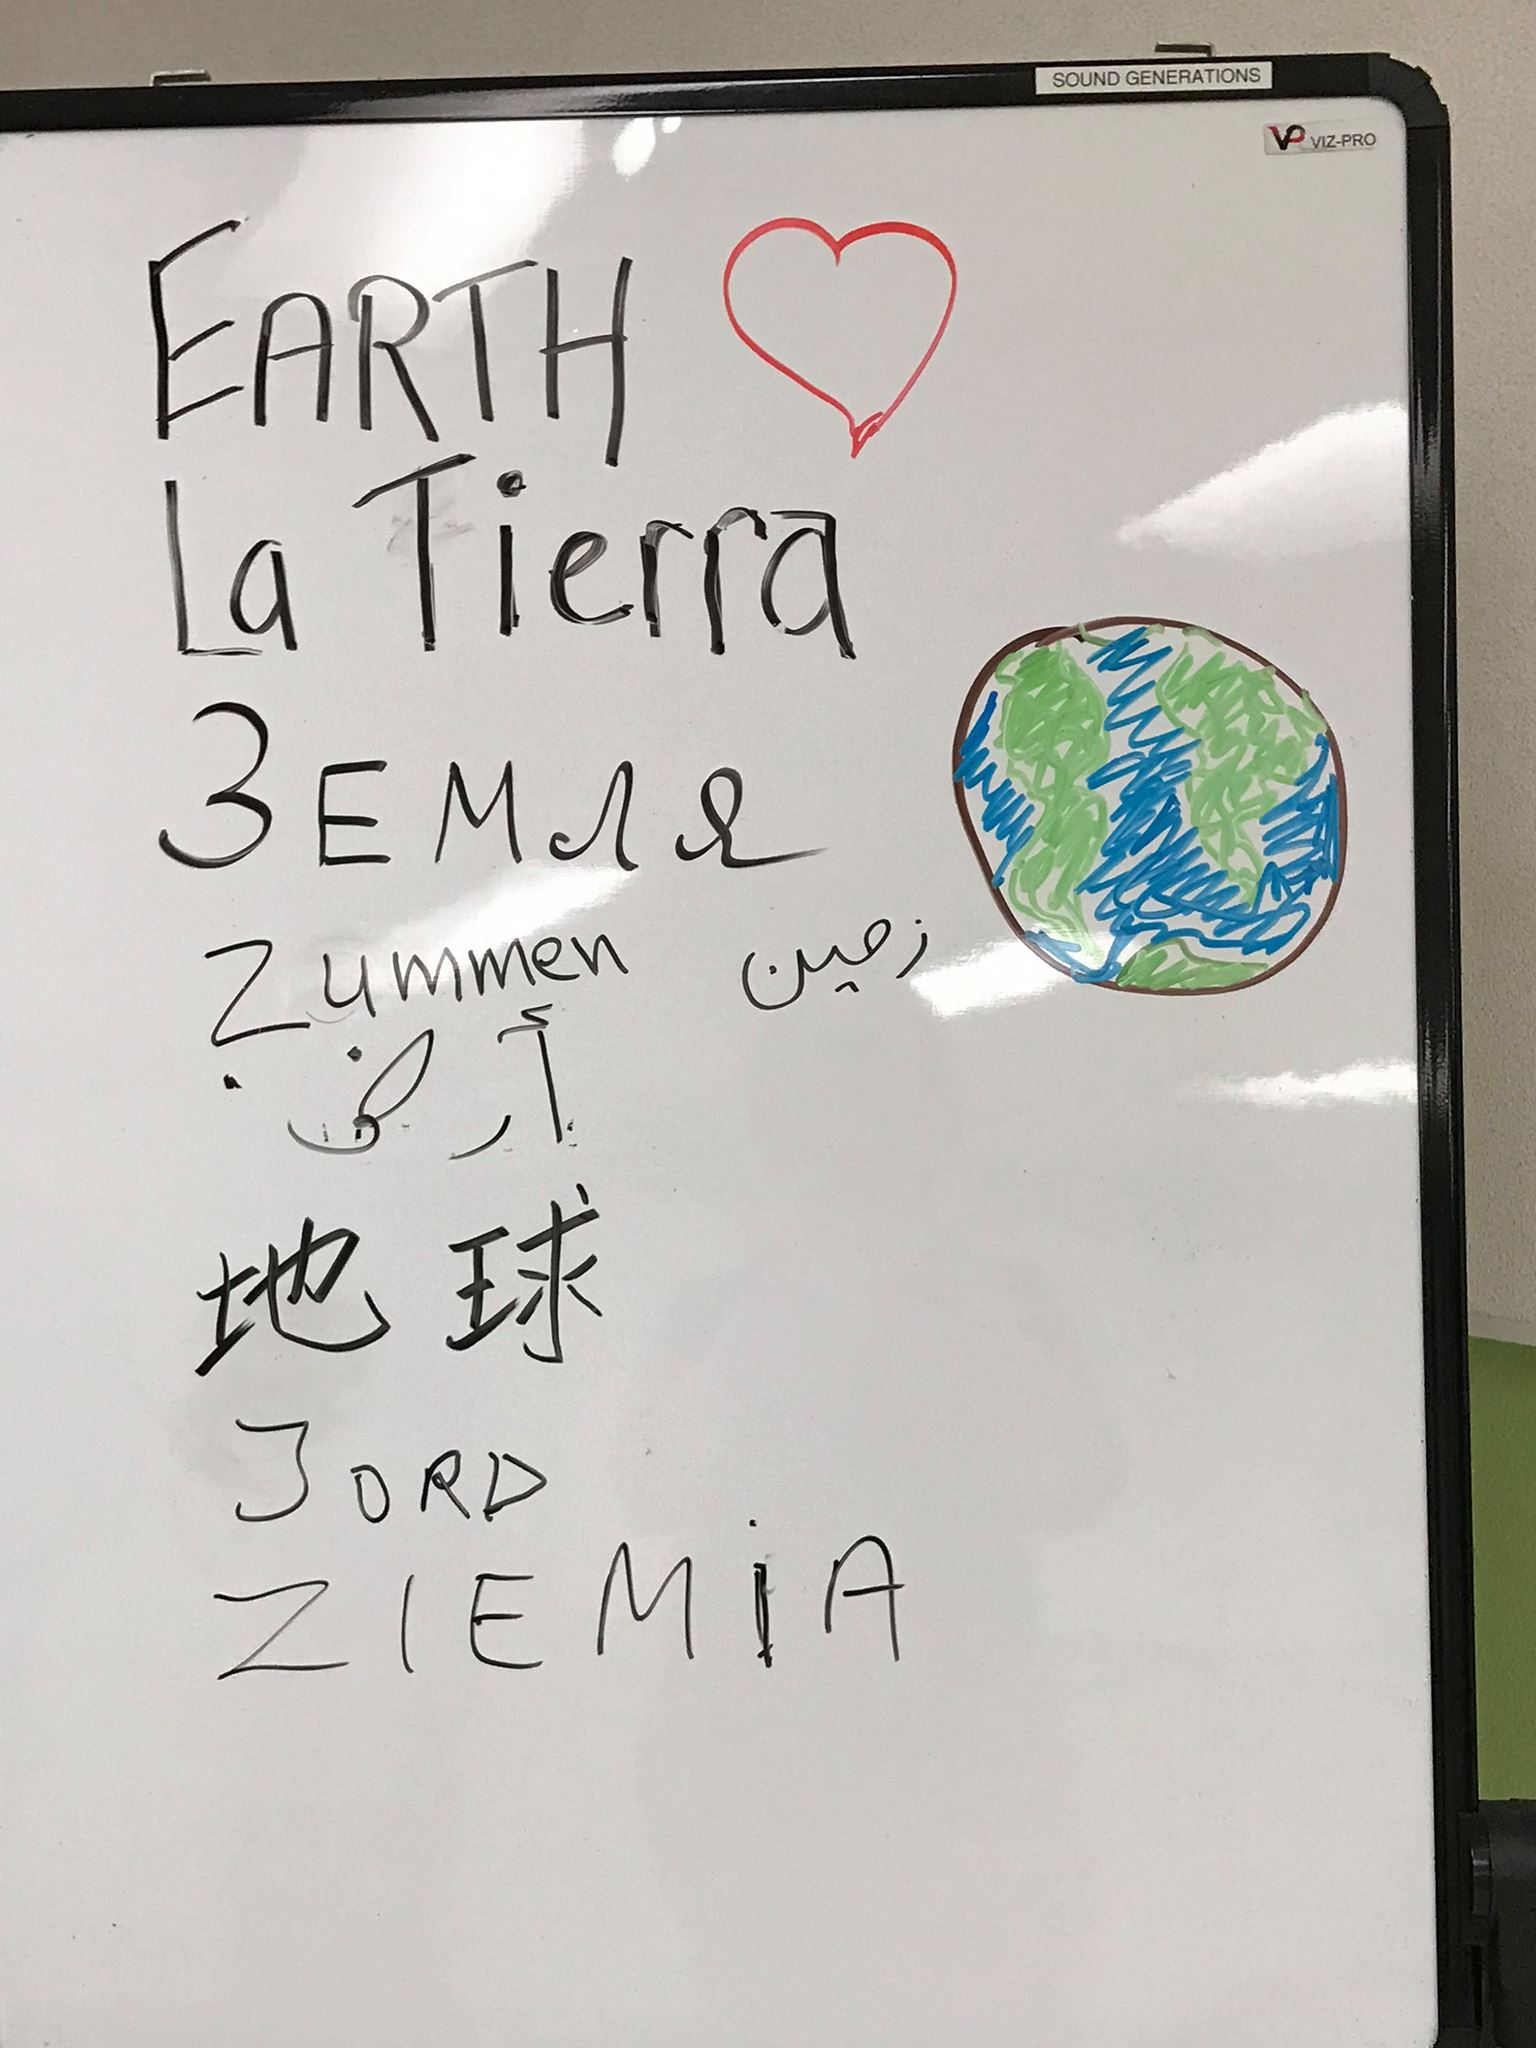 SOUND GENERATIONS
VP VIZ-PRO
EARTH
La Tierra
Земля
Zummen زمین
أرض
地球
JORD
ZIEMiA